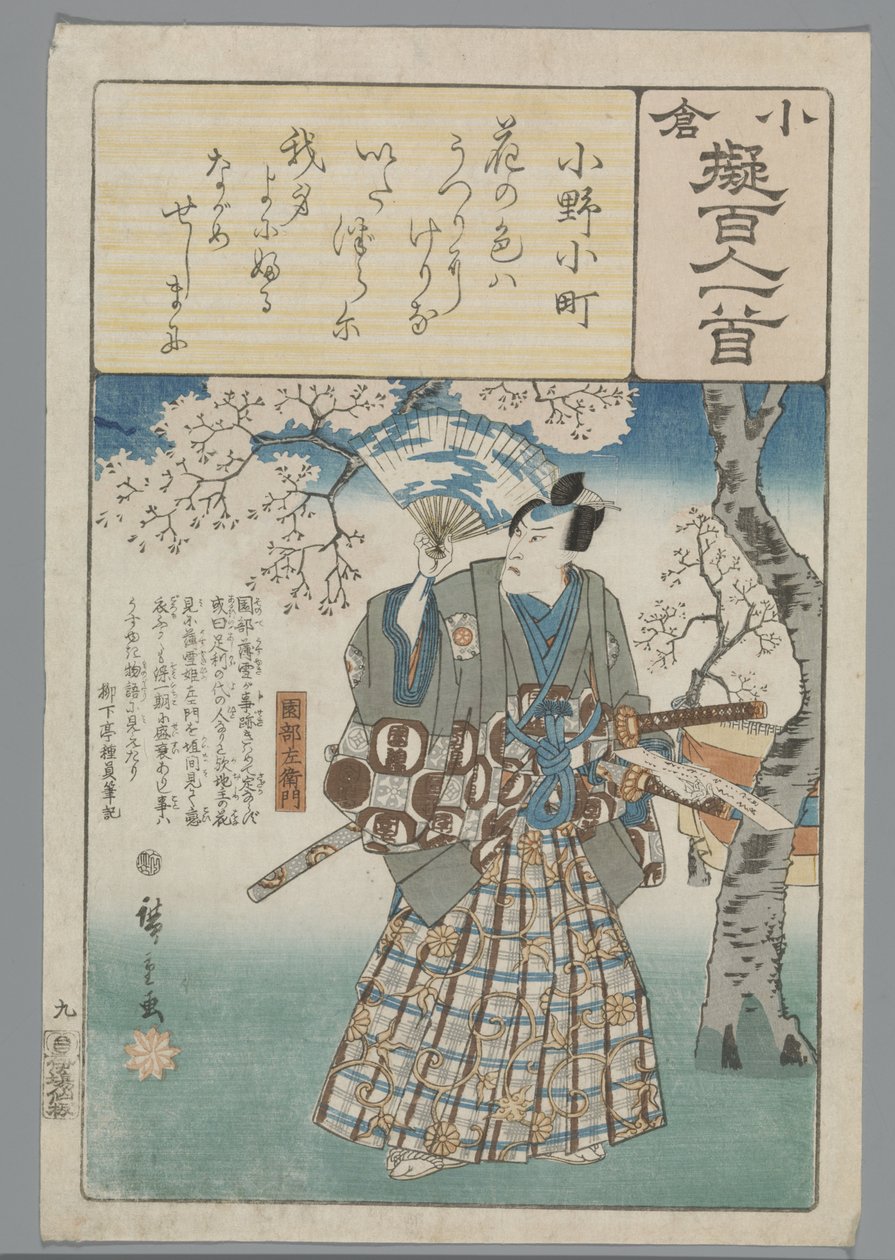 小倉
擬百人一首
小野小町
花の色ハ
うつりに
けりな
いた
津らに
我身
よに婦る
ながめ
せしまに
園部薄雪が事跡きハめて定かならず
或曰足利の代の人なりと歟地主の花
見に薄雪姫左エ門を垣間見て恋
衣ふかくも染一期に盛衰あり事ハ
うすゆき物語に見えたり
柳下亭種員筆記
園部左衛門
廣重画
九
伊場仙板